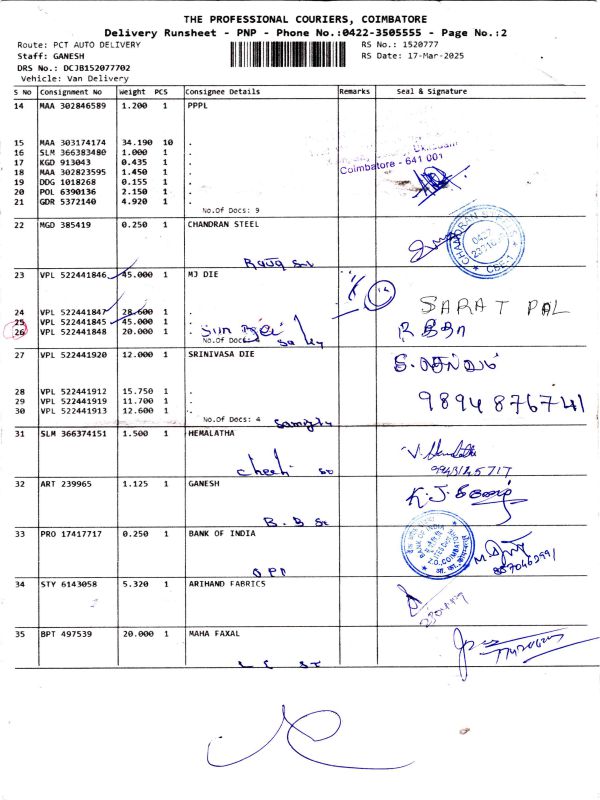 THE PROFESSIONAL COURIERS, COIMBATORE
Delivery Runsheet - PNP - Phone No.:0422-3505555 - Page No.:2
Route: PCT AUTO DELIVERY RS No.: 1520777
Staff: GANESH RS Date: 17-Mar-2025
DRS No.: DCJB152077702
Vehicle: Van Delivery
S No Consignment No Weight PCS Consignee Details Remarks Seal & Signature
14 MAA 302846589 1.200 1 PPPL
15 MAA 303174174 34.190 10 .
16 SLM 366383480 1.000 1 .
17 KGD 913043 0.435 1 .
Coimbatore - 641 001
18 MAA 302823595 1.450 1 .
19 DDG 1018268 0.155 1 .
20 POL 6390136 2.150 1 .
21 GDR 5372140 4.920 1 .
No.Of Docs: 9
22 MGD 385419 0.250 1 CHANDRAN STEEL
CHANDRAN STEELS
CBE-1
23 VPL 522441846 45.000 1 MJ DIE
14
SARAT PAL
24 VPL 522441847 28.600 1 .
25 VPL 522441845 45.000 1 .
26 VPL 522441848 20.000 1 .
No.Of Docs:
27 VPL 522441920 12.000 1 SRINIVASA DIE
28 VPL 522441912 15.750 1 .
29 VPL 522441919 11.700 1 .
30 VPL 522441913 12.600 1 .
9894876741
No.Of Docs: 4
31 SLM 366374151 1.500 1 HEMALATHA
9943145717
32 ART 239965 1.125 1 GANESH
33 PRO 17417717 0.250 1 BANK OF INDIA
BANK OF INDIA
Z.O., COIMBATORE
34 STY 6143058 5.320 1 ARIHAND FABRICS
35 BPT 497539 20.000 1 MAHA FAXAL